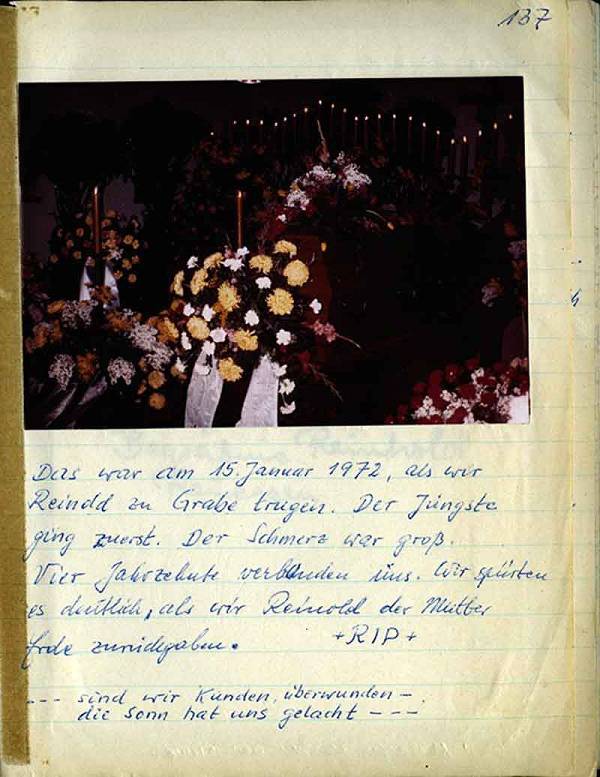 137
Das war am 15. Januar 1972, als wir
Reinold zu Grabe trugen. Der Jüngste
ging zuerst. Der Schmerz war groß.
Vier Jahrzehnte verbinden uns. Wir spürten
es deutlich, als wir Reinold der Mutter
Erde zurückgaben. +RIP+
--- sind wir Kunden, überwunden -
die Sonn hat uns gelacht ---